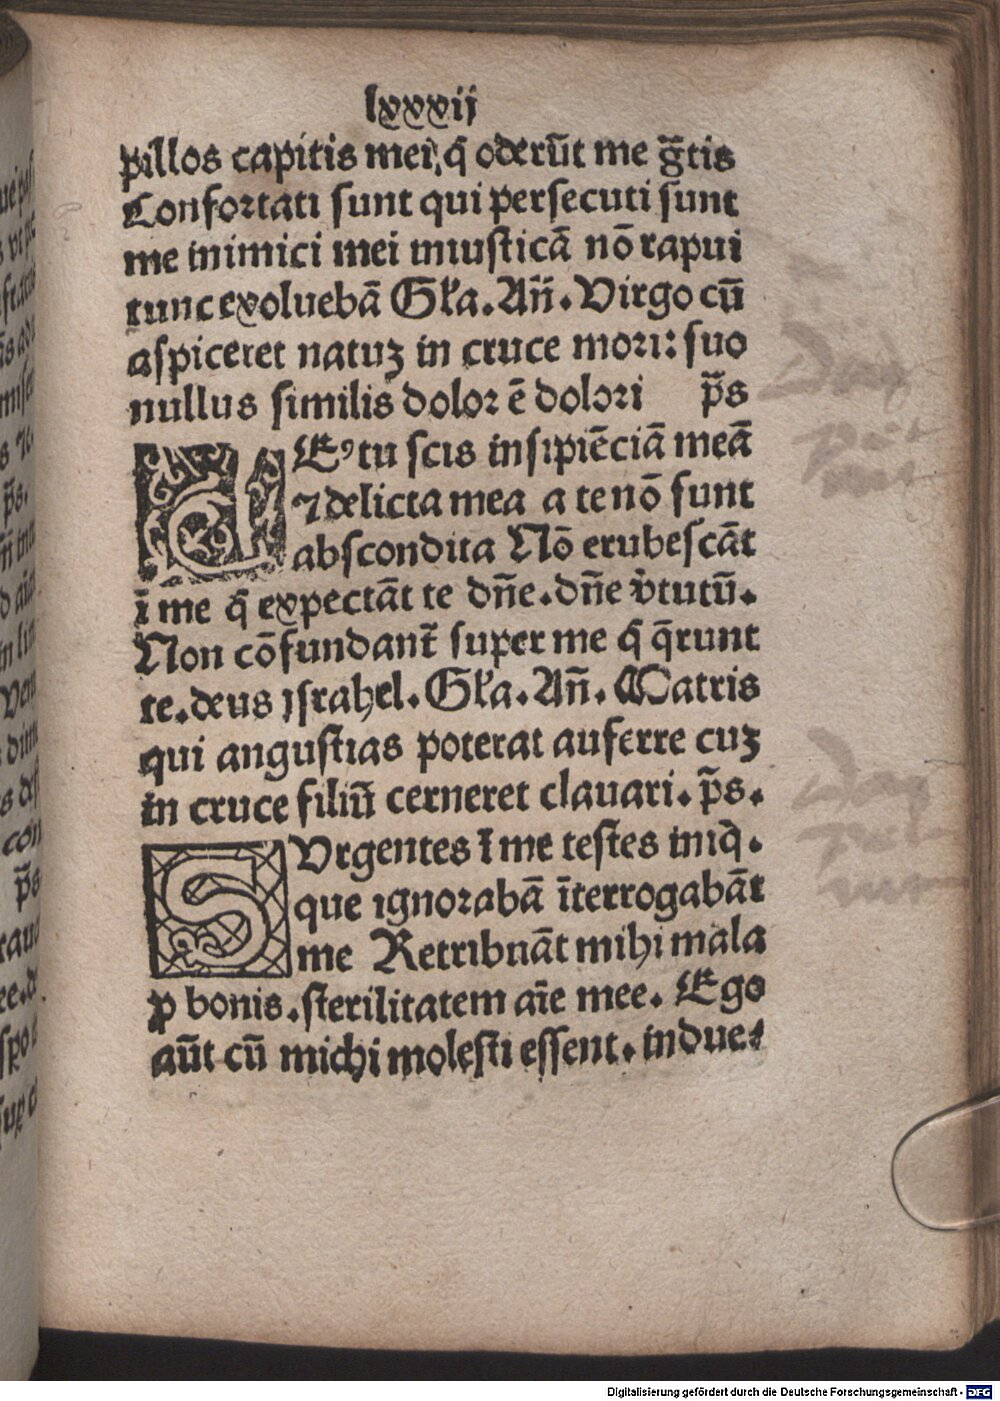 lxxxij
pillos capitis mei, q̄ oderūt me ḡtis
Confortati sunt qui persecuti sunt
me inimici mei iniusticā nō rapui
tunc exoluebā Gľa. Añ. Virgo cū
aspiceret natuȝ in cruce mori: suo
nullus similis dolor ē dolori p̄s
DEꝰ tu scis insipiēciā meā
⁊ delicta mea a te nō sunt
abscondita Nō erubescāt
ī me q̄ expectāt te dñe. dñe v̓tutū.
Non cōfundant̄ super me q̄ q̄runt
te. deus israhel. Gľa. Añ. Matris
qui angustias poterat auferre cuȝ
in cruce filiū cerneret clauari. p̄s.
SVrgentes ī me testes iniq̄.
que ignorabā īterrogabāt
me Retribuāt mihi mala
ꝓ bonis. sterilitatem aīe mee. Ego
aūt cū michi molesti essent. indue-
Digitalisierung gefördert durch die Deutsche Forschungsgemeinschaft - DFG